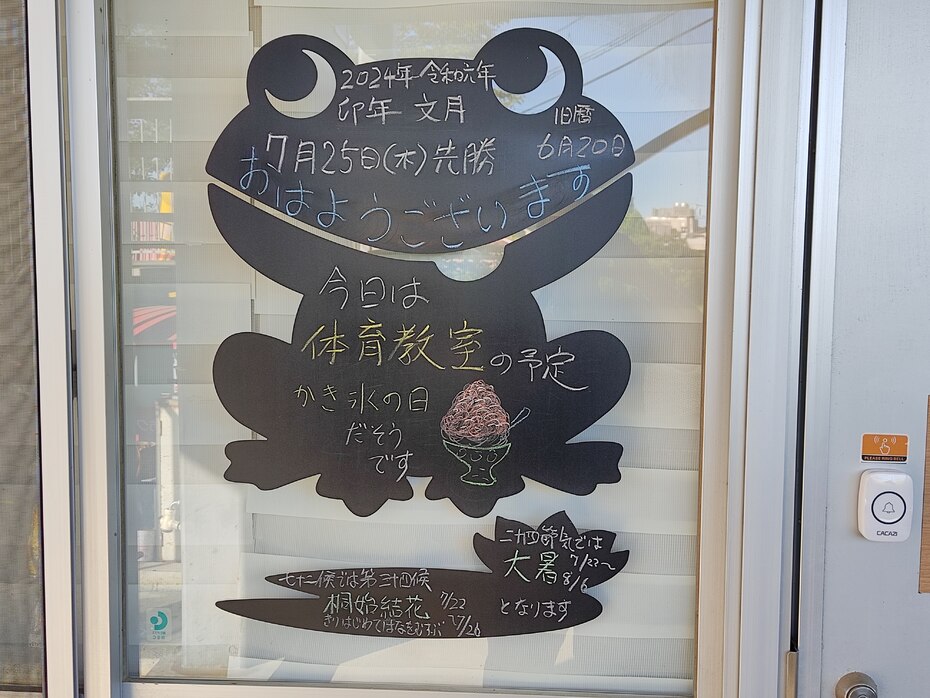 2024年 令和六年
卯年 文月
旧暦
7月25日(木)先勝
6月20日
おはようございます
今日は
体育教室の予定
かき氷の日
だそう
です
二十四節気では
大暑 7/22〜
8/6
となります
七十二候では第三十四候
桐始結花 7/22
きりはじめてはなをむすぶ 7/26
PLEASE RING BELL
CACAZI